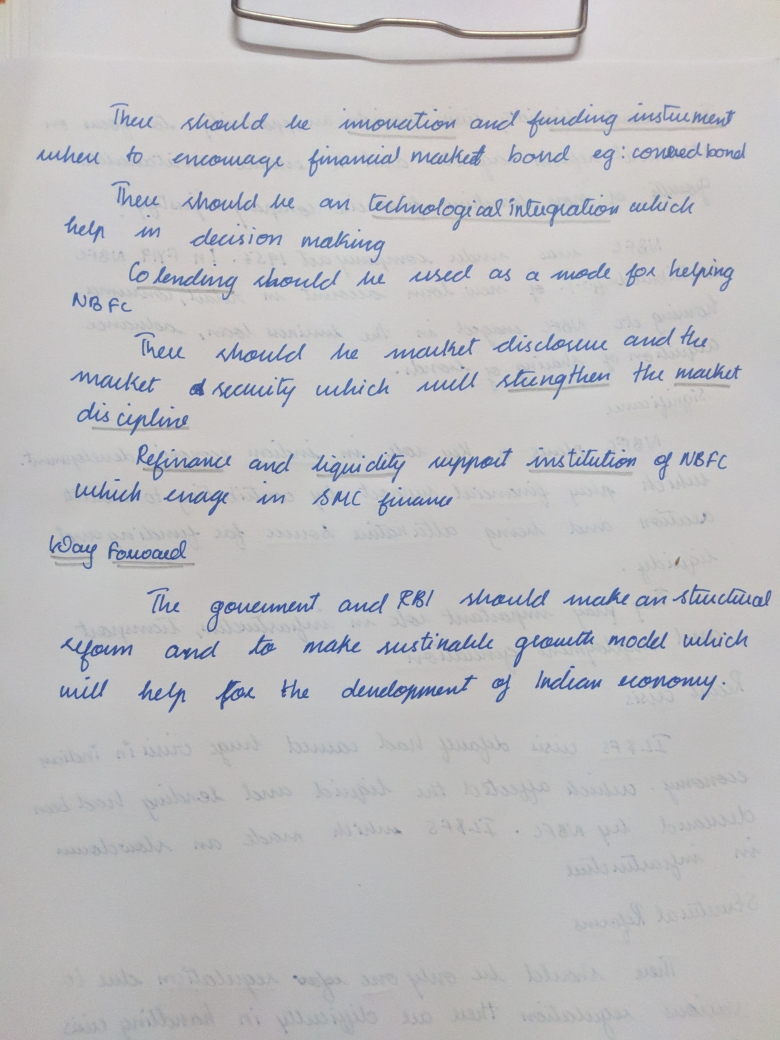 There should be innovation and funding instrument
when to encourage financial market bond eg: covered bond
There should be an technological integration which
help in decision making
Co lending should be used as a mode for helping
NBFC
There should be market disclosure and the
market security which will stengthen the market
discipline
Refinance and liquidity support institution of NBFC
which enage in SMC finance
Way Forward
The goverment and RBI should make an structural
reform and to make sustinable growth model which
will help for the development of Indian economy.